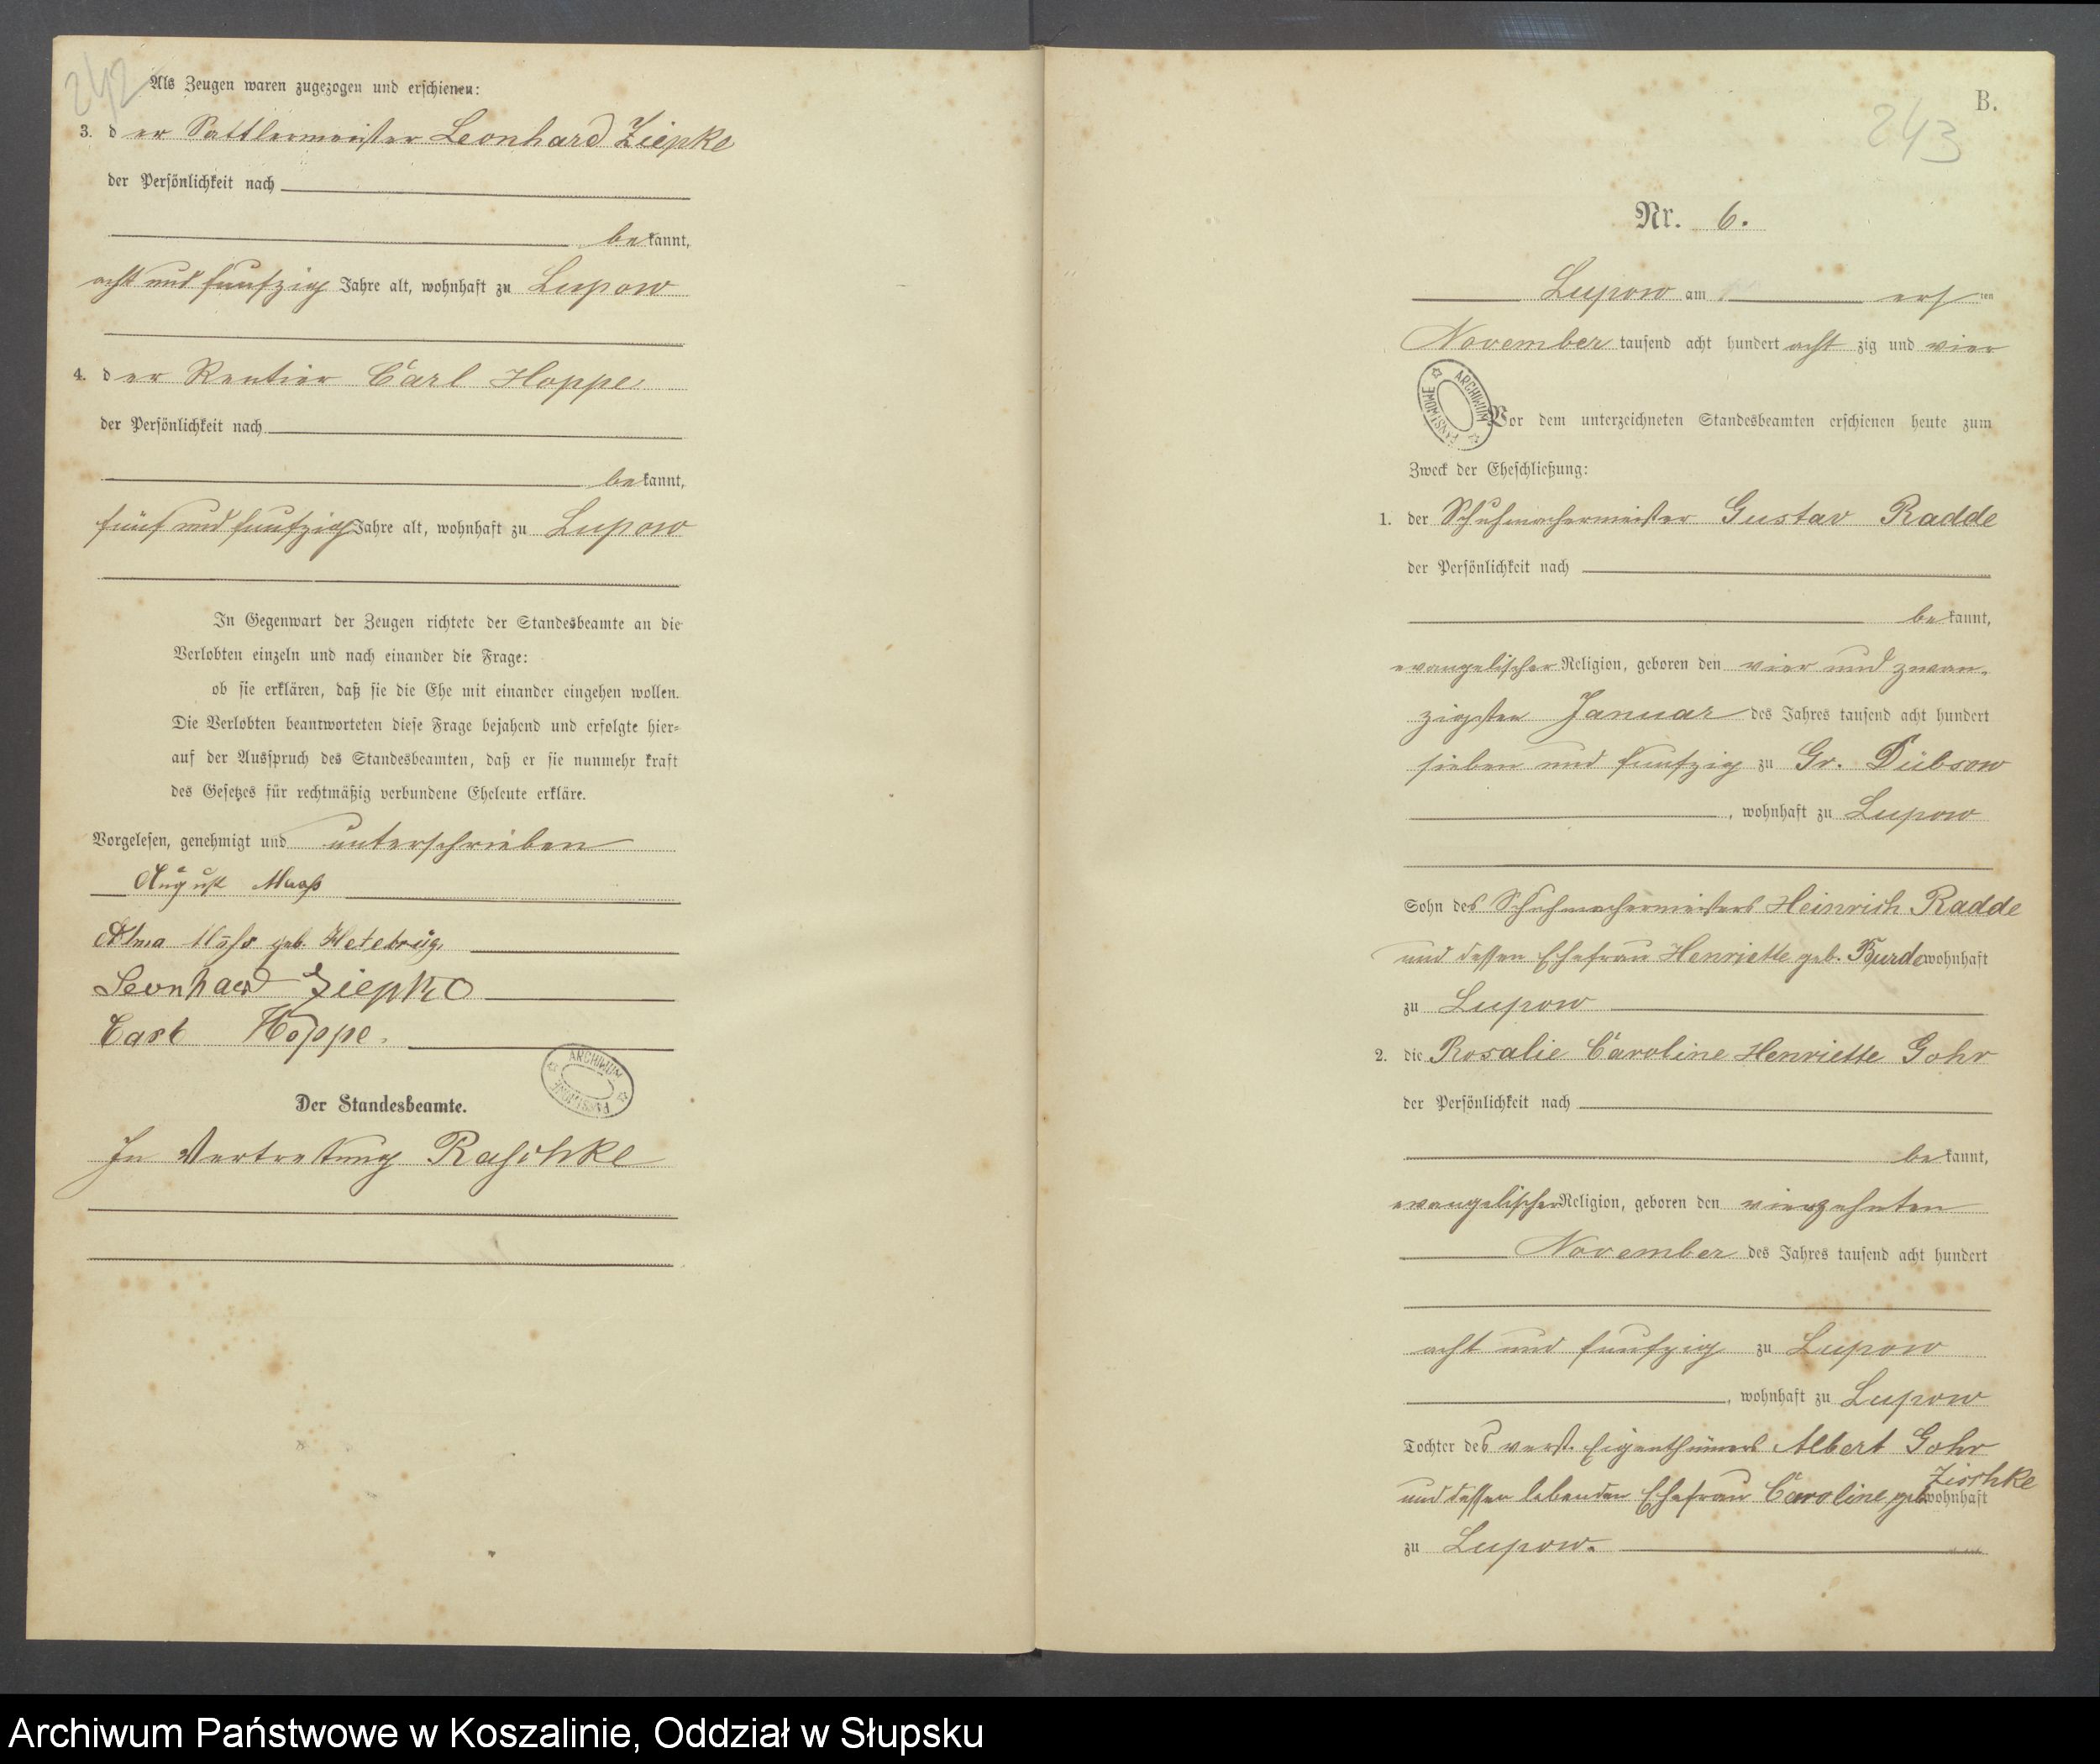 242
Als Zeugen waren zugezogen und erschienen:
3. der Sattlermeister Leonhard Ziepke
der Persönlichkeit nach
bekannt,
acht und funfzig Jahre alt, wohnhaft zu Lupow
4. der Rentier Carl Hoppe
der Persönlichkeit nach
bekannt,
fünf und funfzig Jahre alt, wohnhaft zu Lupow
In Gegenwart der Zeugen richtete der Standesbeamte an die
Verlobten einzeln und nach einander die Frage:
ob sie erklären, daß sie die Ehe mit einander eingehen wollen.
Die Verlobten beantworteten diese Frage bejahend und erfolgte hier-
auf der Ausspruch des Standesbeamten, daß er sie nunmehr kraft
des Gesetzes für rechtmäßig verbundene Eheleute erkläre.
Vorgelesen, genehmigt und unterschrieben
August Maaß
Alma geb. Hetebrüg.
Leonhard Ziepke
Carl Hoppe.
ARCHIWUM PAŃSTWOWE
Der Standesbeamte.
In Vertretung Raschke
B.
243
Nr. 6.
Lupow am ersten
November tausend acht hundert acht zig und vier
ARCHIWUM PAŃSTWOWE
Vor dem unterzeichneten Standesbeamten erschienen heute zum
Zweck der Eheschließung:
1. der Schuhmachermeister Gustav Radde
der Persönlichkeit nach
bekannt,
evangelischer Religion, geboren den vier und zwan-
zigsten Januar des Jahres tausend acht hundert
sieben und funfzig zu Gr. Dübsow
, wohnhaft zu Lupow
Sohn des Schuhmachermeisters Heinrich Radde
und dessen Ehefrau Henriette geb. Burde wohnhaft
zu Lupow
2. die Rosalie Caroline Henriette Gohr
der Persönlichkeit nach
bekannt,
evangelischer Religion, geboren den vierzehnten
November des Jahres tausend acht hundert
acht und funfzig zu Lupow
, wohnhaft zu Lupow
Tochter des verst. Eigenthümers Albert Gohr
und dessen lebenden Ehefrau Caroline geb. Zischke wohnhaft
zu Lupow.
Archiwum Państwowe w Koszalinie, Oddział w Słupsku